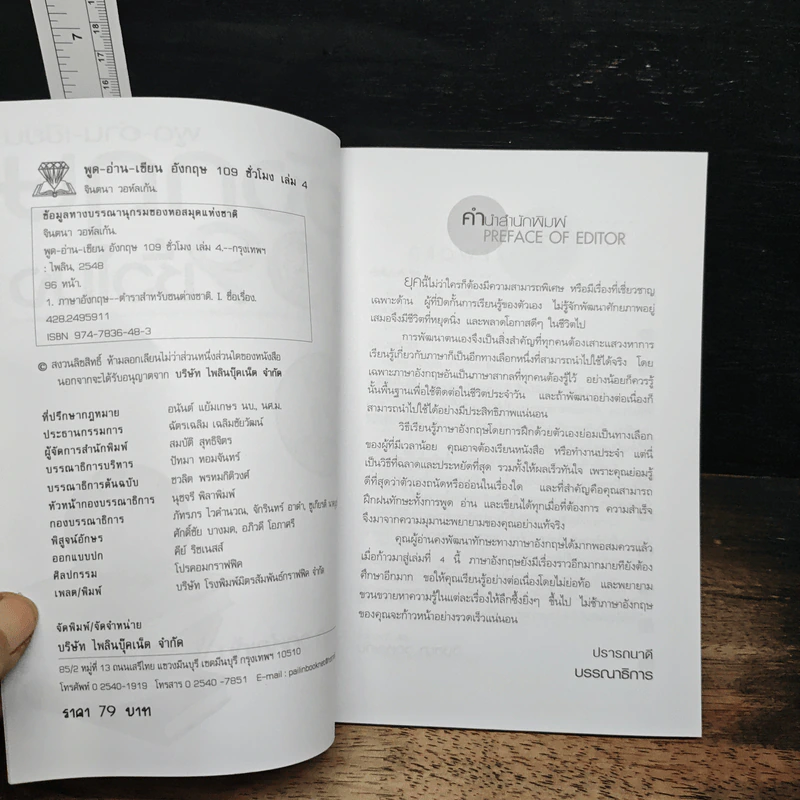 7
18
17
16
พูด-อ่าน-เขียน อังกฤษ 109 ชั่วโมง เล่ม 4
จินตนา วอห์ลเกัน.
ข้อมูลทางบรรณานุกรมของหอสมุดแห่งชาติ
จินตนา วอห์ลเกัน.
พูด-อ่าน-เขียน อังกฤษ 109 ชั่วโมง เล่ม 4.--กรุงเทพฯ
: ไพลิน, 2548
96 หน้า.
1. ภาษาอังกฤษ--ตำราสำหรับชนต่างชาติ. I. ชื่อเรื่อง.
428.2495911
ISBN 974-7836-48-3
© สงวนลิขสิทธิ์ ห้ามลอกเลียนไม่ว่าส่วนหนึ่งส่วนใดของหนังสือ
นอกจากจะได้รับอนุญาตจาก บริษัท ไพลินบุ๊คเน็ต จำกัด
ที่ปรึกษากฎหมาย อนันต์ แย้มเกษร นบ., นศ.ม.
ประธานกรรมการ ฉัตรเฉลิม เฉลิมชัยวัฒน์
ผู้จัดการสำนักพิมพ์ สมบัติ สุทธิจิตร
บรรณาธิการบริหาร ปัทมา หอมจันทร์
บรรณาธิการต้นฉบับ ชวลิต พรหมกิติวงศ์
หัวหน้ากองบรรณาธิการ นุชจรี พิลาพิมพ์
กองบรรณาธิการ ภัทรภร ไวคำนวณ, จักรินทร์ อาดำ,
พิสูจน์อักษร ศักดิ์ชัย บางมด, อภิวดี โอภาศรี
ออกแบบปก คีย์ ริชเนสส์
ศิลปกรรม โปรคอมกราฟฟิค
เพลต/พิมพ์ บริษัท โรงพิมพ์มิตรสัมพันธ์กราฟฟิค จำกัด
จัดพิมพ์/จัดจำหน่าย
บริษัท ไพลินบุ๊คเน็ต จำกัด
85/2 หมู่ที่ 13 ถนนเสรีไทย แขวงมีนบุรี เขตมีนบุรี กรุงเทพฯ 10510
โทรศัพท์ 0 2540-1919 โทรสาร 0 2540 -7851 E-mail :
ราคา 79 บาท
คำนำสำนักพิมพ์
PREFACE OF EDITOR
ยุคนี้ไม่ว่าใครก็ต้องมีความสามารถพิเศษ หรือมีเรื่องที่เชี่ยวชาญ
เฉพาะด้าน ผู้ที่ปิดกั้นการเรียนรู้ของตัวเอง ไม่รู้จักพัฒนาศักยภาพอยู่
เสมอจึงมีชีวิตที่หยุดนิ่ง และพลาดโอกาสดีๆ ในชีวิตไป
การพัฒนาตนเองจึงเป็นสิ่งสำคัญที่ทุกคนต้องเสาะแสวงหาการ
เรียนรู้เกี่ยวกับภาษาก็เป็นอีกทางเลือกหนึ่งที่สามารถนำไปใช้ได้จริง โดย
เฉพาะภาษาอังกฤษอันเป็นภาษาสากลที่ทุกคนต้องรู้ไว้ อย่างน้อยก็ควรรู้
นั้นพื้นฐานเพื่อใช้ติดต่อในชีวิตประจำวัน และถ้าพัฒนาอย่างต่อเนื่องก็
สามารถนำไปใช้ได้อย่างมีประสิทธิภาพแน่นอน
วิธีเรียนรู้ภาษาอังกฤษโดยการฝึกด้วยตัวเองย่อมเป็นทางเลือก
ของผู้ที่มีเวลาน้อย คุณอาจต้องเรียนหนังสือ หรือทำงานประจำ แต่นี่
เป็นวิธีที่ฉลาดและประหยัดที่สุด รวมทั้งให้ผลเร็วทันใจ เพราะคุณย่อมรู้
ดีที่สุดว่าตัวเองถนัดหรืออ่อนในเรื่องใด และที่สำคัญคือคุณสามารถ
ฝึกฝนทักษะทั้งการพูด อ่าน และเขียนได้ทุกเมื่อที่ต้องการ ความสำเร็จ
จึงมาจากความมุมานะพยายามของคุณอย่างแท้จริง
คุณผู้อ่านคงพัฒนาทักษะทางภาษาอังกฤษได้มากพอสมควรแล้ว
เมื่อก้าวมาสู่เล่มที่ 4 นี้ ภาษาอังกฤษยังมีเรื่องราวอีกมากมายที่ยังต้อง
ศึกษาอีกมาก ขอให้คุณเรียนรู้อย่างต่อเนื่องโดยไม่ย่อท้อ และพยายาม
ขวนขวายหาความรู้ในแต่ละเรื่องให้ลึกซึ้งยิ่งๆ ขึ้นไป ไม่ช้าภาษาอังกฤษ
ของคุณจะก้าวหน้าอย่างรวดเร็วแน่นอน
ปรารถนาดี
บรรณาธิการ